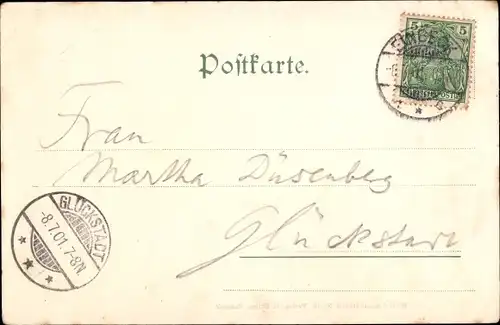 5 5
Postkarte.
EINBECK
Frau
Martha Düsenberg
GLÜCKSTADT
-8.7.01.7-8N.
Glückstadt